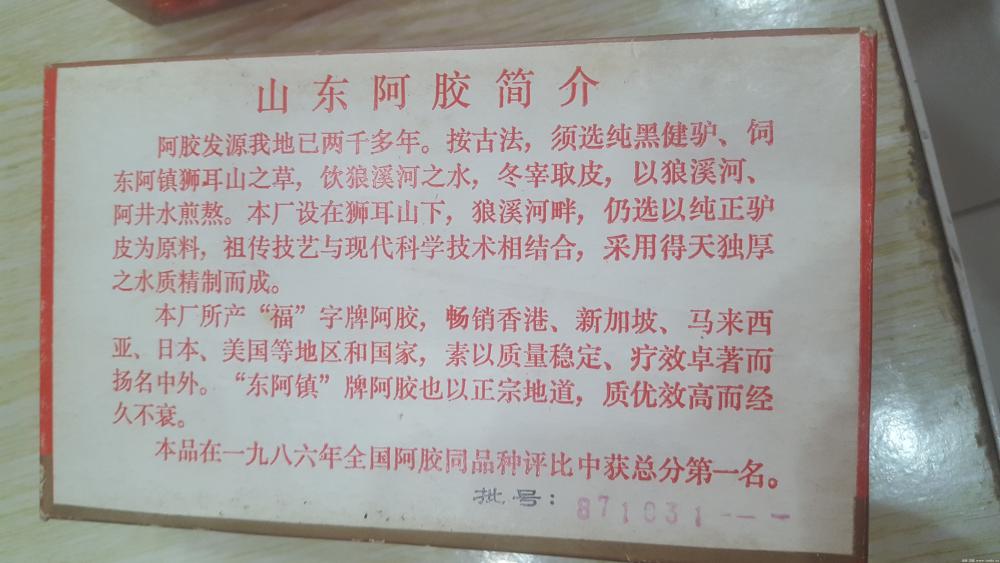 山东阿胶简介
阿胶发源我地已两千多年。按古法，须选纯黑健驴、饲
东阿镇狮耳山之草，饮狼溪河之水，冬宰取皮，以狼溪河、
阿井水煎熬。本厂设在狮耳山下，狼溪河畔，仍选以纯正驴
皮为原料，祖传技艺与现代科学技术相结合，采用得天独厚
之水质精制而成。
本厂所产“福”字牌阿胶，畅销香港、新加坡、马来西
亚、日本、美国等地区和国家，素以质量稳定、疗效卓著而
扬名中外。“东阿镇”牌阿胶也以正宗地道，质优效高而经
久不衰。
本品在一九八六年全国阿胶同品种评比中获总分第一名。
批号：871031---